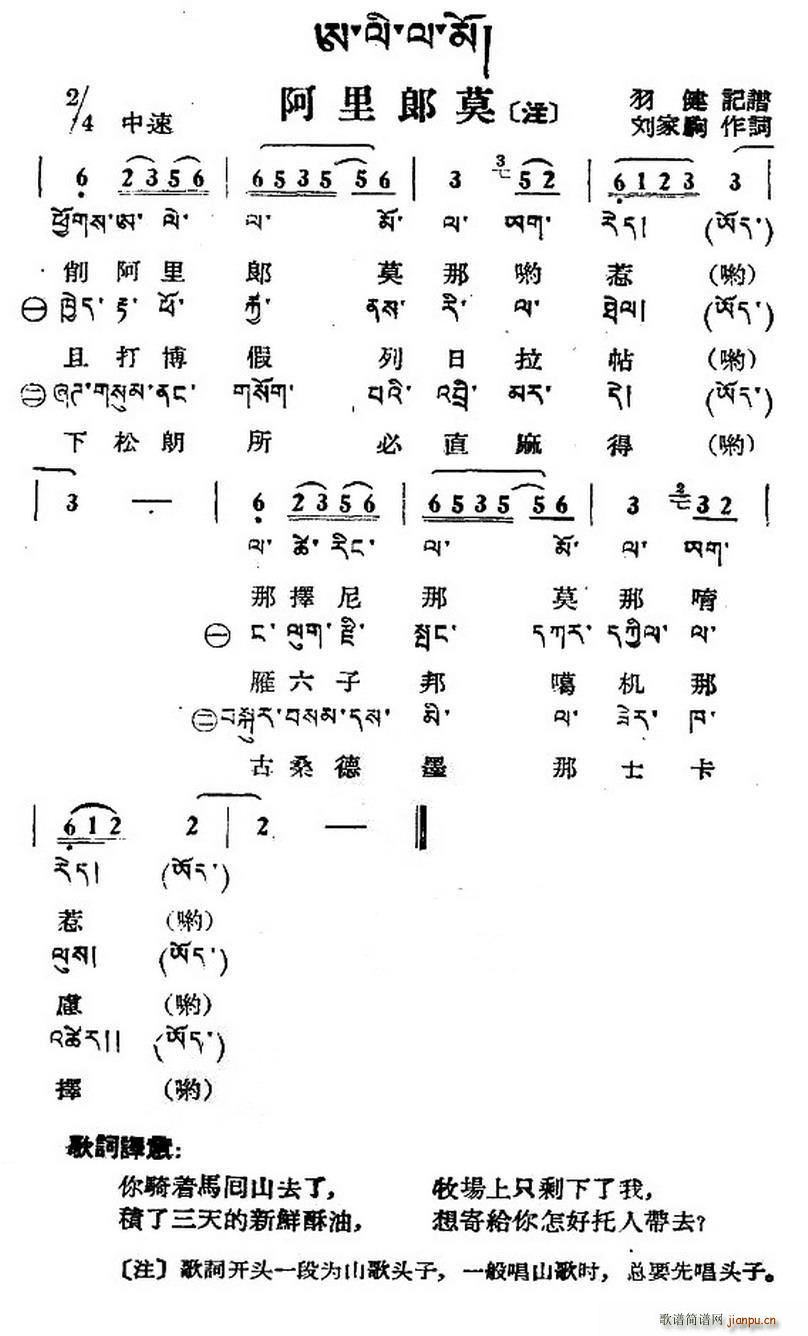 ཨ་ལི་ལ་མོ།
2/4 中速 阿里郎莫〔注〕 羽健記譜
刘家駒作詞
| 6 2356 | 6535 56 | 3 52 | 6123 3 |
ཕྱོགས་ཨ་ལེ་ ལ་ མོ་ ལ་ ཨག་ རེད། (ཨོད་)
削阿里 郎 莫那喲惹 (喲)
㊀ ཁྱེད་རྟ་ཕོ་ རྐྱ་ ནས་ རི་ ལ་ ཐེལ། (ཨོད་)
且打博 假 列日拉帖 (喲)
㊁ ཞག་གསུམ་ནང་ གསོག་ པའི་ འབྲི་ མར་ དེ། (ཨོད་)
下松朗 所 必直麻得 (喲)
| 3 — | 6 2356 | 6535 56 | 3 32 |
ལ་ ཚེ་ རིང་ ལ་ མོ་ ལ་ ཨག་
那擇尼 那 莫那唷
㊀ ང་ ལུག་ རྫི་ སྤང་ དཀར་ དཀྱིལ་ ལ་
雁六子 邦 噶机那
㊁ བསྐུར་བསམ་དས་ མི་ ལ་ ཟེར་ ཁ་
古桑德 墨 那士卡
| 612 2 | 2 — ‖
རེད། (ཨོད་)
惹 (喲)
ལུས། (ཨོད་)
慮 (喲)
འཚེར།། (ཨོད་)
擇 (喲)
歌詞譯意:
你騎着馬回山去了, 牧場上只剩下了我,
積了三天的新鮮酥油, 想寄給你怎好托人帶去?
〔注〕歌詞开头一段为山歌头子, 一般唱山歌时, 总要先唱头子。
歌谱简谱网 jianpu.cn